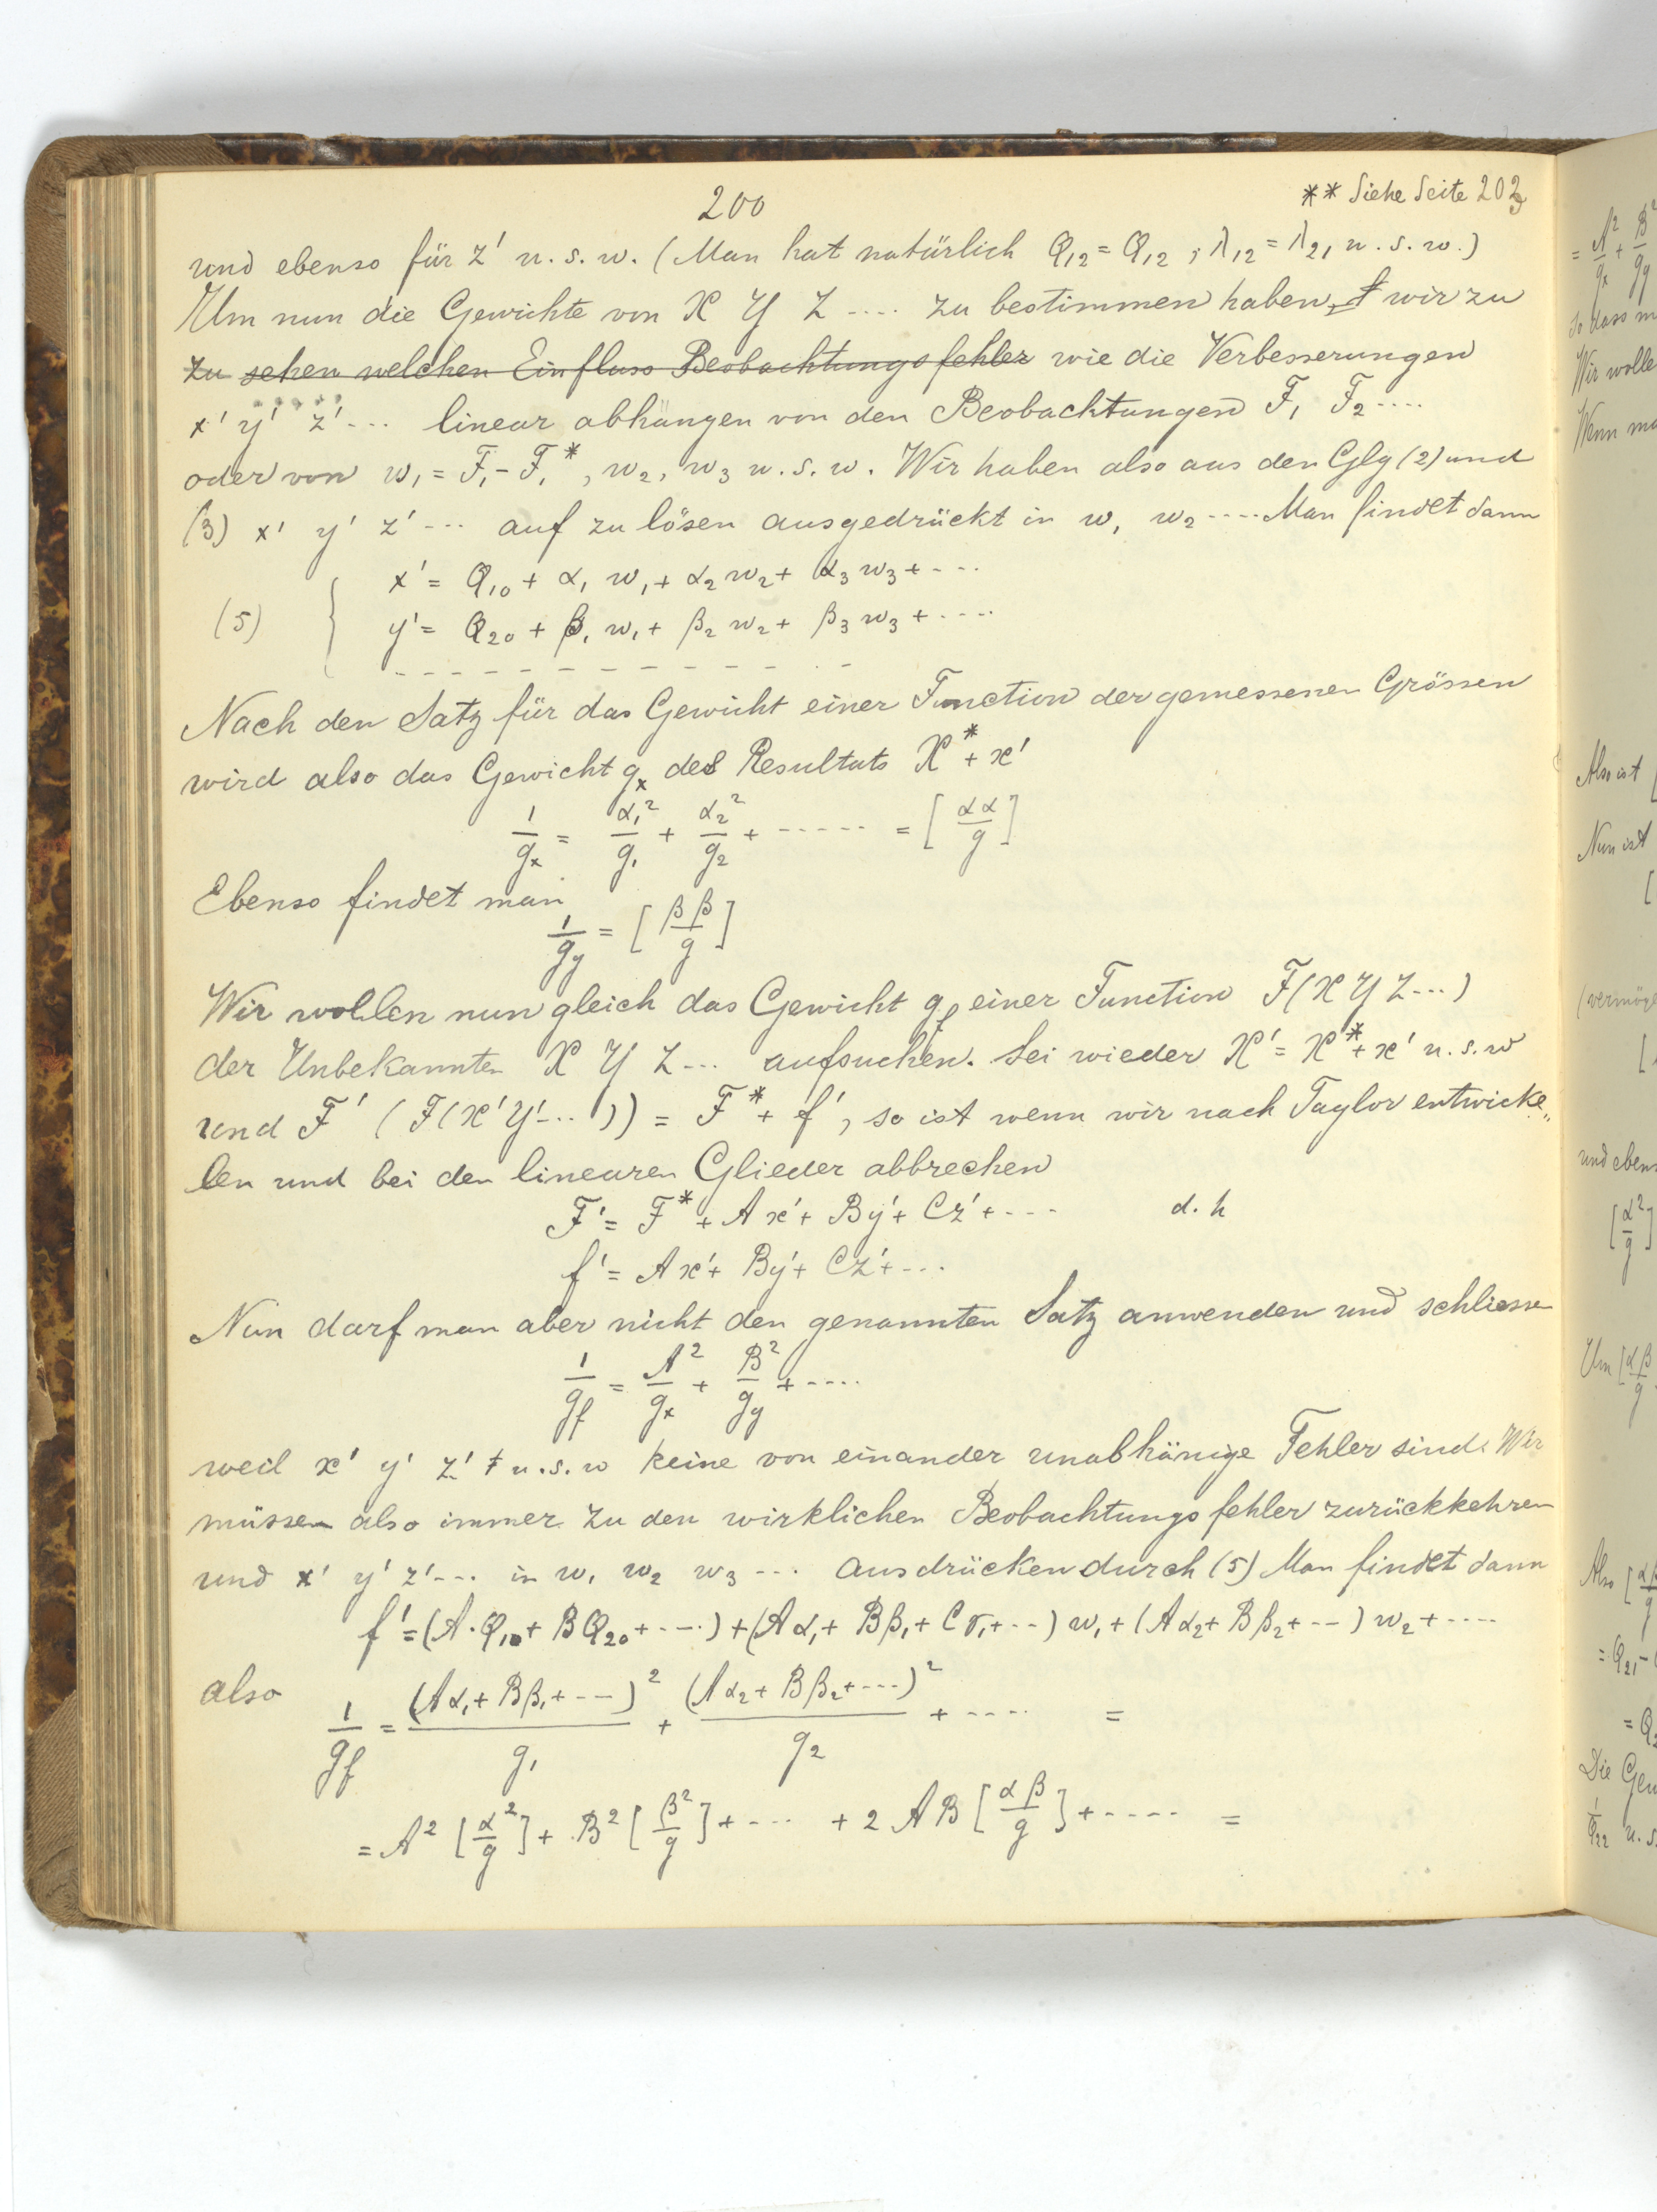 200
** Siehe Seite 203
und ebenso für z' u.s.w. (Man hat natürlich Q₁₂ = Q₁₂ ; λ₁₂ = λ₂₁ u.s.w.)
Um nun die Gewichte von X Y Z .... zu bestimmen haben wir zu
zu sehen welchen Einfluss Beobachtungsfehler wie die Verbesserungen
x' y' z' ... linear abhängen von den Beobachtungen F₁ F₂ ....
oder von w₁ = F₁ - F₁*, w₂, w₃ u.s.w. Wir haben also aus den Glg (2) und
(3) x' y' z' ... auf zu lösen ausgedrückt in w₁ w₂ .... Man findet dann
x' = Q₁₀ + α₁ w₁ + α₂ w₂ + α₃ w₃ + ....
(5) { y' = Q₂₀ + β₁ w₁ + β₂ w₂ + β₃ w₃ + ....
- - - - - - - - - - - -
Nach den Satz für das Gewicht einer Function der gemessenen Grössen
wird also das Gewicht gₓ des Resultats X* + x'
1/gₓ = α₁²/g₁ + α₂²/g₂ + ...... = [αα/g]
Ebenso findet man
1/g_y = [ββ/g]
Wir wollen nun gleich das Gewicht g_f einer Function F(X Y Z ...)
der Unbekannten X Y Z ... aufsuchen. Sei wieder X' = X* + x' u.s.w
und F' (F(X' Y' ...)) = F* + f', so ist wenn wir nach Taylor entwicke„
len und bei den linearen Glieder abbrechen
F' = F* + Ax' + By' + Cz' + .... d.h
f' = Ax' + By' + Cz' + ...
Nun darf man aber nicht den genannten Satz anwenden und schliessen
1/g_f = A²/gₓ + B²/g_y + ....
weil x' y' z' u.s.w keine von einander unabhänige Fehler sind. Wir
müssen also immer zu den wirklichen Beobachtungsfehler zurückkehren
und x' y' z' ... in w₁ w₂ w₃ ... ausdrücken durch (5) Man findet dann
f' = (A·Q₁₀ + BQ₂₀ + ...) + (Aα₁ + Bβ₁ + Cγ₁ + ..) w₁ + (Aα₂ + Bβ₂ + ..) w₂ + ....
also 1/g_f = (Aα₁ + Bβ₁ + ...)²/g₁ + (Aα₂ + Bβ₂ + ...)²/g₂ + ..... =
= A² [α²/g] + B² [β²/g] + .... + 2 AB [αβ/g] + ..... =